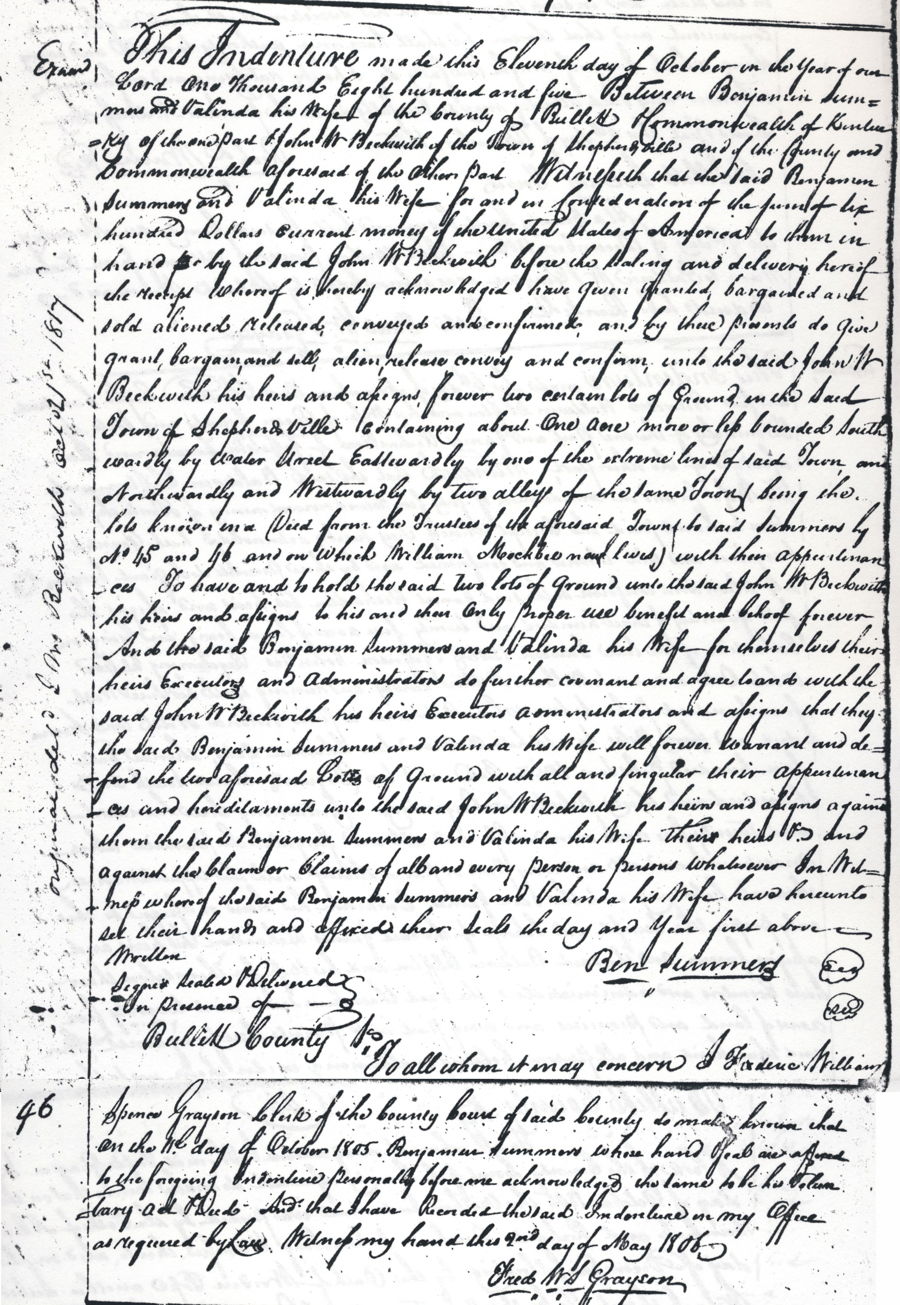 Exam
This Indenture made this Eleventh day of October in the Year of our
Lord One Thousand Eight hundred and five Between Benjamin Sum=
mers and Valinda his Wife of the County of Bullitt & Commonwealth of Kentuc
=ky of the one part & John W Beckwith of the Town of Shepherdsville and of the County and
Commonwealth aforesaid of the Other part Witnesseth that the said Benjamin
Summers and Valinda his Wife for and in Consideration of the sum of Six
hundred Dollars Current money of the United States of America to them in
hand by the said John W Beckwith before the Sealing and delivery hereof
the receipt Whereof is hereby acknowledged have given granted, bargained and
sold aliened released, conveyed and confirmed, and by these presents do give
grant, bargain, and sell, alien, release convey and confirm, unto the said John W
Beckwith his heirs and assigns, forever two certain lots of Ground, in the Said
Town of Shepherds Ville Containing about One acre more or less bounded South
wardly by Water Street Eastwardly by one of the extreme lines of said Town, and
Northwardly and Westwardly by two alleys of the same Town (being the
lots known in a Deed from the Trustees of the aforesaid Town to said Summers by
No 45 and 46 and on which William Mockbee now lives) with their appurtenan
-ces To have and to hold the said two lots of Ground unto the said John W Beckwith
his heirs and assigns to his and their Only proper use benefit and behoof forever
And the said Benjamin Summers and Valinda his Wife for themselves their
heirs Executors and Administrators do further covenant and agree to and with the
said John W Beckwith his heirs Executors administrators and assigns that they
the said Benjamin Summers and Valinda his Wife will forever Warrant and de=
-fend the two aforesaid Lotts of Ground with all and singular their appurtenan
-ces and hereditaments unto the said John W Beckwith his heirs and assigns against
them the said Benjamin Summers and Valinda his Wife their heirs &c and
against the Claim or Claims of all and every person or persons whatsoever In Wit=
-ness whereof the said Benjamin Summers and Valinda his Wife have hereunto
set their hands and affixed their Seals the day and Year first above
Written
Ben Summers Seal
Signed Sealed & Delivered
In presence of Seal
Bullitt County Ss
To all whom it may concern I Frederic William
original dd. Jno Beckwith Oct 21st 1817
46
Spence Grayson Clerk of the County Court of said County do make known that
On the 11th day of October 1805. Benjamin Summers whose hand & Seal are affixed
to the foregoing Indenture personally before me acknowledged the same to be his Volun
tary act & Deed And that I have Recorded the said Indenture in my Office
as required by Law. Witness my hand this 2nd day of May 1806
Fred Wm S Grayson